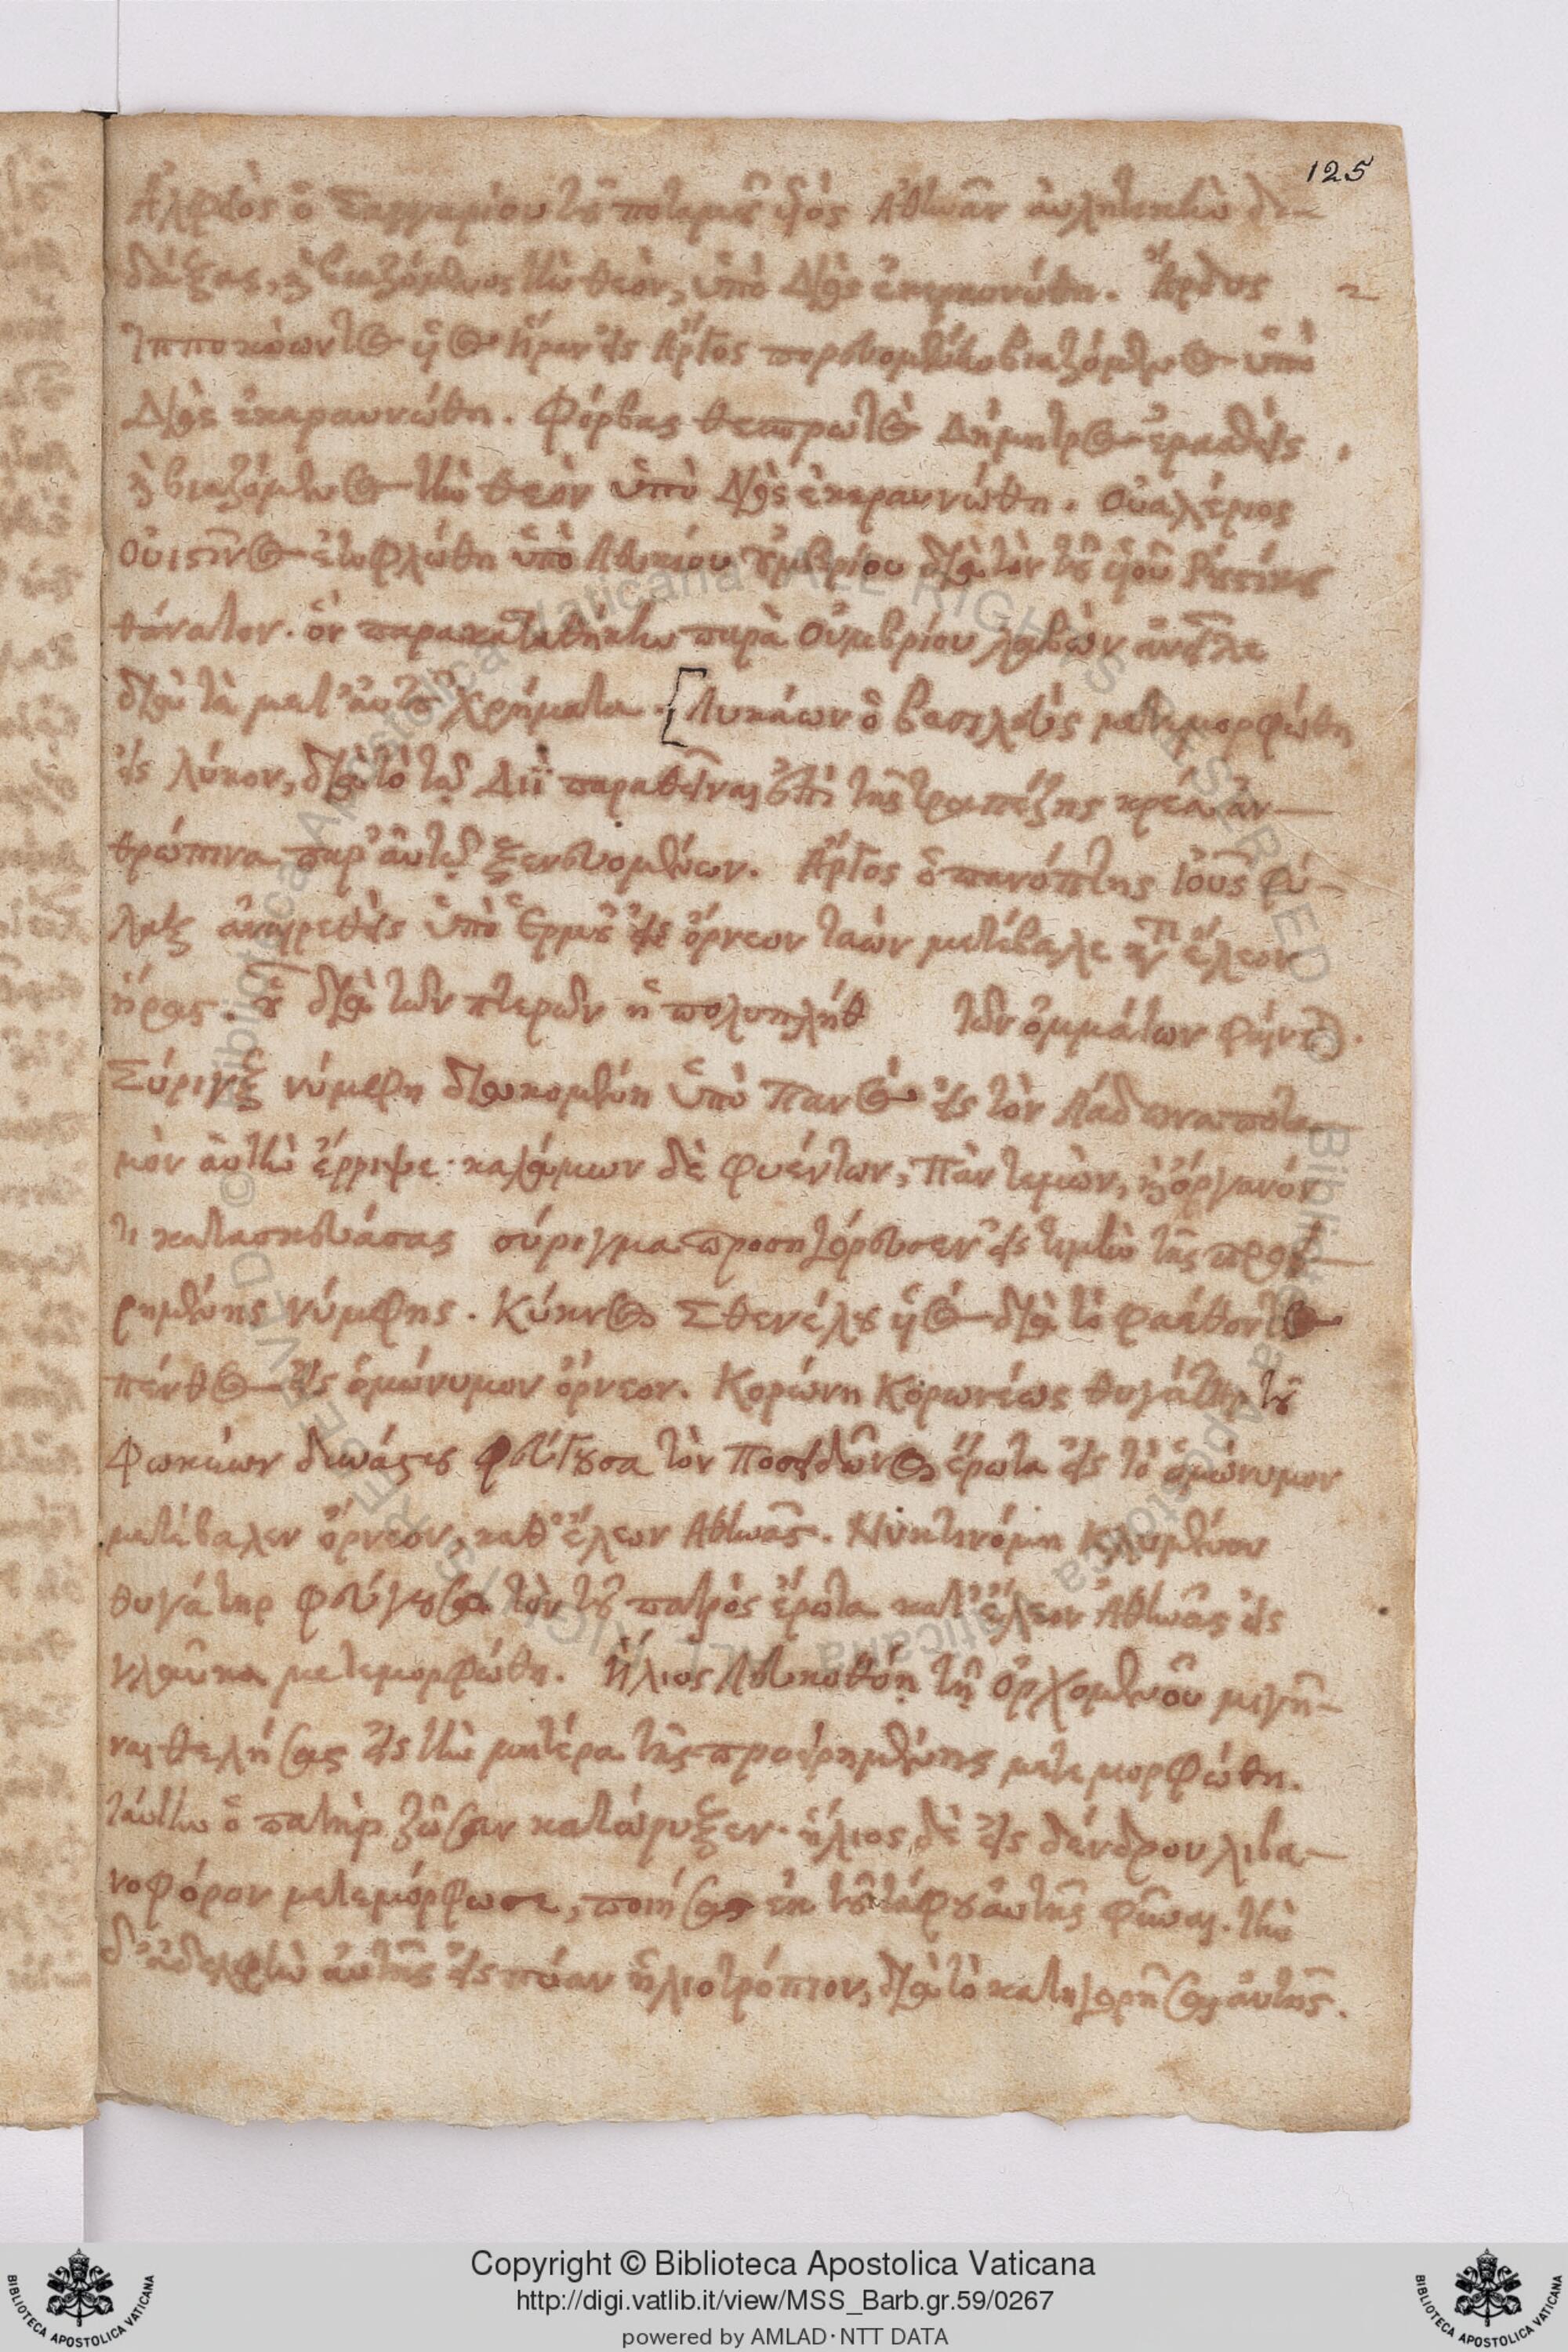 125
Ἀλφειὸς ὁ Σαγγαρίου τοῦ ποταμοῦ υἱὸς Ἀθηνᾶν αὐλητικὴν δι-
δάξας, καὶ βιαζόμενος τὴν θεὸν, ὑπὸ Διὸς ἐκεραυνώθη.
Ἱπποκόωντος υἱὸς Ἥραν εἰς Ἄργος πορευομένην βιαζόμενος ὑπὸ
Διὸς ἐκεραυνώθη. Φόρβας Δήμητρος ἐρασθεὶς
καὶ βιαζόμενος τὴν θεὸν ὑπὸ Διὸς ἐκεραυνώθη. Οὐαλέριος
ἐτυφλώθη ὑπὸ διὰ τὸν τοῦ υἱοῦ
θάνατον. ὃν παρακαταθήκην παρὰ Οὐμβρίου λαβὼν ἀνεῖλε
διὰ τὰ μετ' αὐτοῦ χρήματα. [Λυκάων ὁ βασιλεὺς μετεμορφώθη
εἰς λύκον, διὰ τὸ τῷ Διῒ παραθεῖναι ἐπὶ τῆς τραπέζης κρέα ἀν-
θρώπινα παρ' αὐτῷ ξενευομένων. Ἄργος ὁ πανόπτης Ἰοῦς φύ-
λαξ ἀναιρεθεὶς ὑπὸ Ἑρμοῦ εἰς ὄρνεον ταὼν μετέβαλε κατ' ἔλεον
ἥρας. οὗ διὰ τῶν πτερῶν ἡ πολυπλήθ τῶν ὀμμάτων φαίνεται.
Σύριγξ νύμφη διωκομένη ὑπὸ Πανὸς εἰς τὸν Λάδωνα ποτα-
μὸν αὐτὴν ἔρριψε· καλάμων δὲ φυέντων, Πὰν τεμὼν, καὶ ὄργανόν
τι κατασκευάσας σύριγμα προσηγόρευσεν εἰς τιμὴν τῆς προει-
ρημένης νύμφης. Κύκνος Σθενέλου υἱὸς διὰ τὸ φαέθοντος
πένθος εἰς ὁμώνυμον ὄρνεον. Κορώνη Κορωνέως θυγάτηρ τοῦ
Φωκέων δυνάστου φεύγουσα τὸν Ποσειδῶνος ἔρωτα εἰς τὸ ὁμώνυμον
μετέβαλεν ὄρνεον, καθ' ἔλεον Ἀθηνᾶς. Νυκτινόμη Κλυμένου
θυγάτηρ φεύγουσα τὸν τοῦ πατρὸς ἔρωτα κατ' ἔλεον Ἀθηνᾶς εἰς
γλαῦκα μετεμορφώθη. Ἥλιος Λευκοθόῃ τῇ Ὀρχομενοῦ μιγῆ-
ναι θελήσας εἰς τὴν μητέρα τῆς προειρημένης μετεμορφώθη.
ταύτην ὁ πατὴρ ζῶσαν κατώρυξεν· ἥλιος δὲ εἰς δένδρον λιβα-
νοφόρον μετεμόρφωσε, ποιήσας ἐκ τοῦ τάφου αὐτῆς φῦναι. τὴν
δ' ἀδελφὴν αὐτῆς εἰς πόαν ἡλιοτρόπιον, διὰ τὸ κατηγορῆσαι αὐτῆς.
Copyright © Biblioteca Apostolica Vaticana
http://digi.vatlib.it/view/MSS_Barb.gr.59/0267
powered by AMLAD·NTT DATA